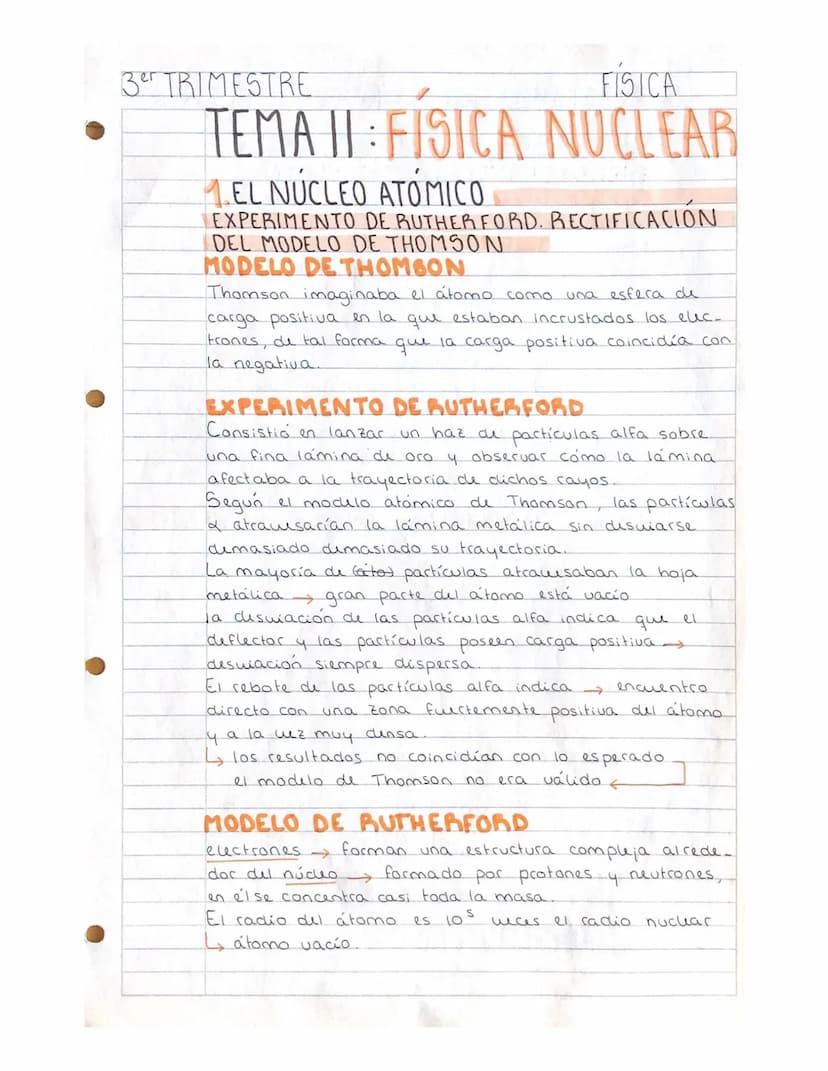 3er TRIMESTRE FÍSICA
TEMA 11: FÍSICA NUCLEAR
1. EL NÚCLEO ATÓMICO
EXPERIMENTO DE RUTHERFORD. RECTIFICACIÓN
DEL MODELO DE THOMSON
MODELO DE THOMSON
Thomson imaginaba el átomo como una esfera de
carga positiva en la que estaban incrustados los elec-
trones, de tal forma que la carga positiva coincidía con
la negativa.
EXPERIMENTO DE RUTHERFORD
Consistió en lanzar un haz de partículas alfa sobre
una fina lámina de oro y observar cómo la lámina
afectaba a la trayectoria de dichos rayos.
Según el modelo atómico de Thomson, las partículas
α atravesarían la lámina metálica sin desviarse
demasiado demasiado su trayectoria.
La mayoría de partículas atravesaban la hoja
metálica → gran parte del átomo está vacío
la desviación de las partículas alfa indica que el
deflector y las partículas poseen carga positiva →
desviación siempre dispersa.
El rebote de las partículas alfa indica → encuentro
directo con una zona fuertemente positiva del átomo
y a la vez muy densa.
↳ los resultados no coincidían con lo esperado
el modelo de Thomson no era válido ←
MODELO DE RUTHERFORD
electrones → forman una estructura compleja alrede-
dor del núcleo → formado por protones y neutrones,
en él se concentra casi toda la masa.
El radio del átomo es 10⁵ veces el radio nuclear
↳ átomo vacío.